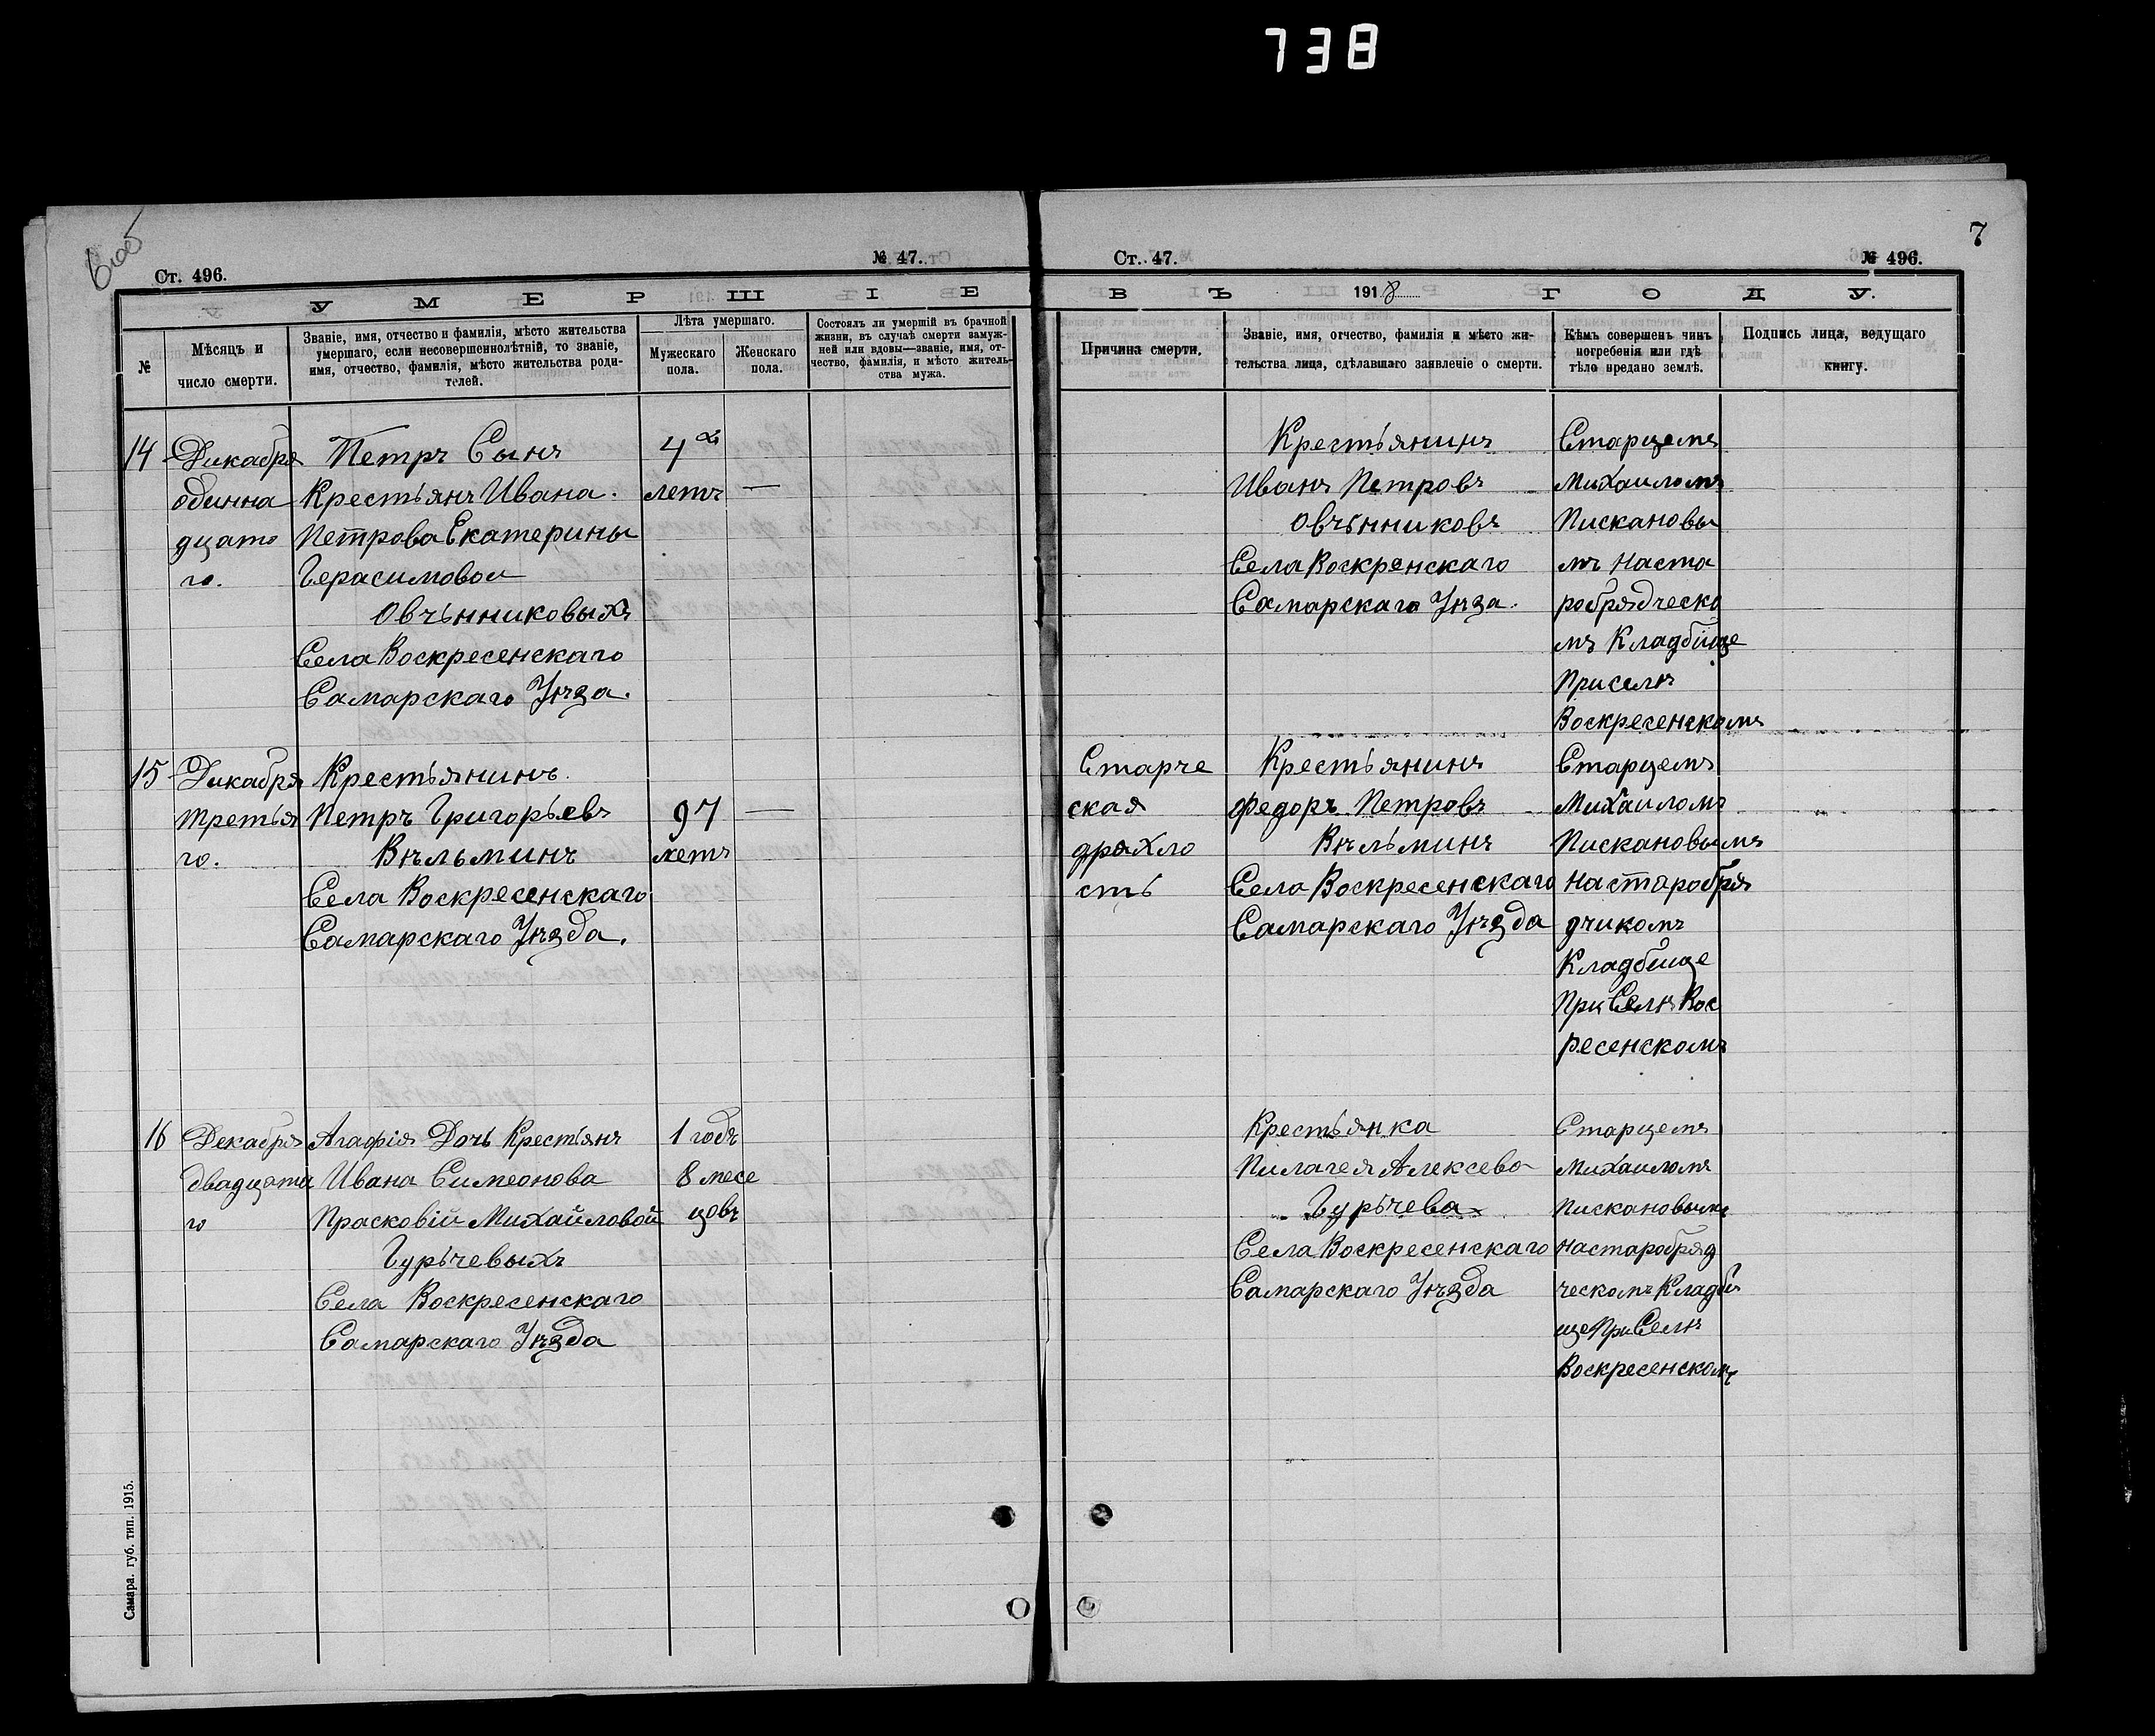 738
7
Ст. 496.
№ 47.
Ст. 47.
№ 496.
УМЕРШІЕ
ВЪ 1918 ГОДУ.
№
Мѣсяцъ и
число смерти.
Званіе, имя, отчество и фамилія, мѣсто жительства
умершаго, если несовершеннолѣтній, то званіе,
имя, отчество, фамилія, мѣсто жительства роди-
телей.
Лѣта умершаго.
Мужескаго
пола.
Женскаго
пола.
Состоялъ ли умершій въ брачной
жизни, въ случаѣ смерти замуж-
ней или вдовы—званіе, имя, от-
чество, фамилія, и мѣсто житель-
ства мужа.
Причина смерти.
Званіе, имя, отчество, фамилія и мѣсто жи-
тельства лица, сдѣлавшаго заявленіе о смерти.
Кѣмъ совершенъ чинъ
погребенія или гдѣ
тѣло предано землѣ.
Подпись лица, ведущаго
книгу.
14
Дикабря
одинна
дцато
го.
Петръ Сынъ
Крестьянъ Ивана.
Петрова Екатерины
Герасимовои
Овчьнниковыхъ
Села Воскресенскаго
Самарскаго Уѣза.
4х
летъ —
Крестьянинъ
Иванъ Петровъ
Овчьнниковъ
Села Воскренскаго
Самарскаго Уѣза.
Старцемъ
Михаиломъ
Пискановы
мъ Наста
робрядческо
мъ Кладбище
При селѣ
Воскресенскомъ
15
Дикабря
третья
го.
Крестьянинъ.
Петръ Григорьевъ
Вѣльминъ
Села Воскресенскаго
Самарскаго Уѣзда.
97 —
летъ
Старче
ская
дряхло
сть
Крестьянинъ
Федоръ Петровъ
Вѣльминъ
Села Воскресенскаго
Самарскаго Уѣзда
Старцемъ
Михаиломъ
Пискановымъ
Настаробря
дчикомъ
Кладбище
При Селѣ Вос
ресенскомъ
16
Декабря
двадцата
го
Агафія Дочь Крестьянъ
Ивана Симеонова
Прасковій Михайловой
Гурьчевыхъ
Села Воскресенскаго
Самарскаго Уѣзда
1 годъ
8 месе
цовъ
Крестьянка
Пилагея Алексева
Гурьчева
Села Воскресенскаго
Самарскаго Уѣзда
Старцемъ
Михаиломъ
Пискановымъ
настаробряд
ческомъ Кладби
ще При Селѣ
Воскресенскомъ
Самара. губ. тип. 1915.